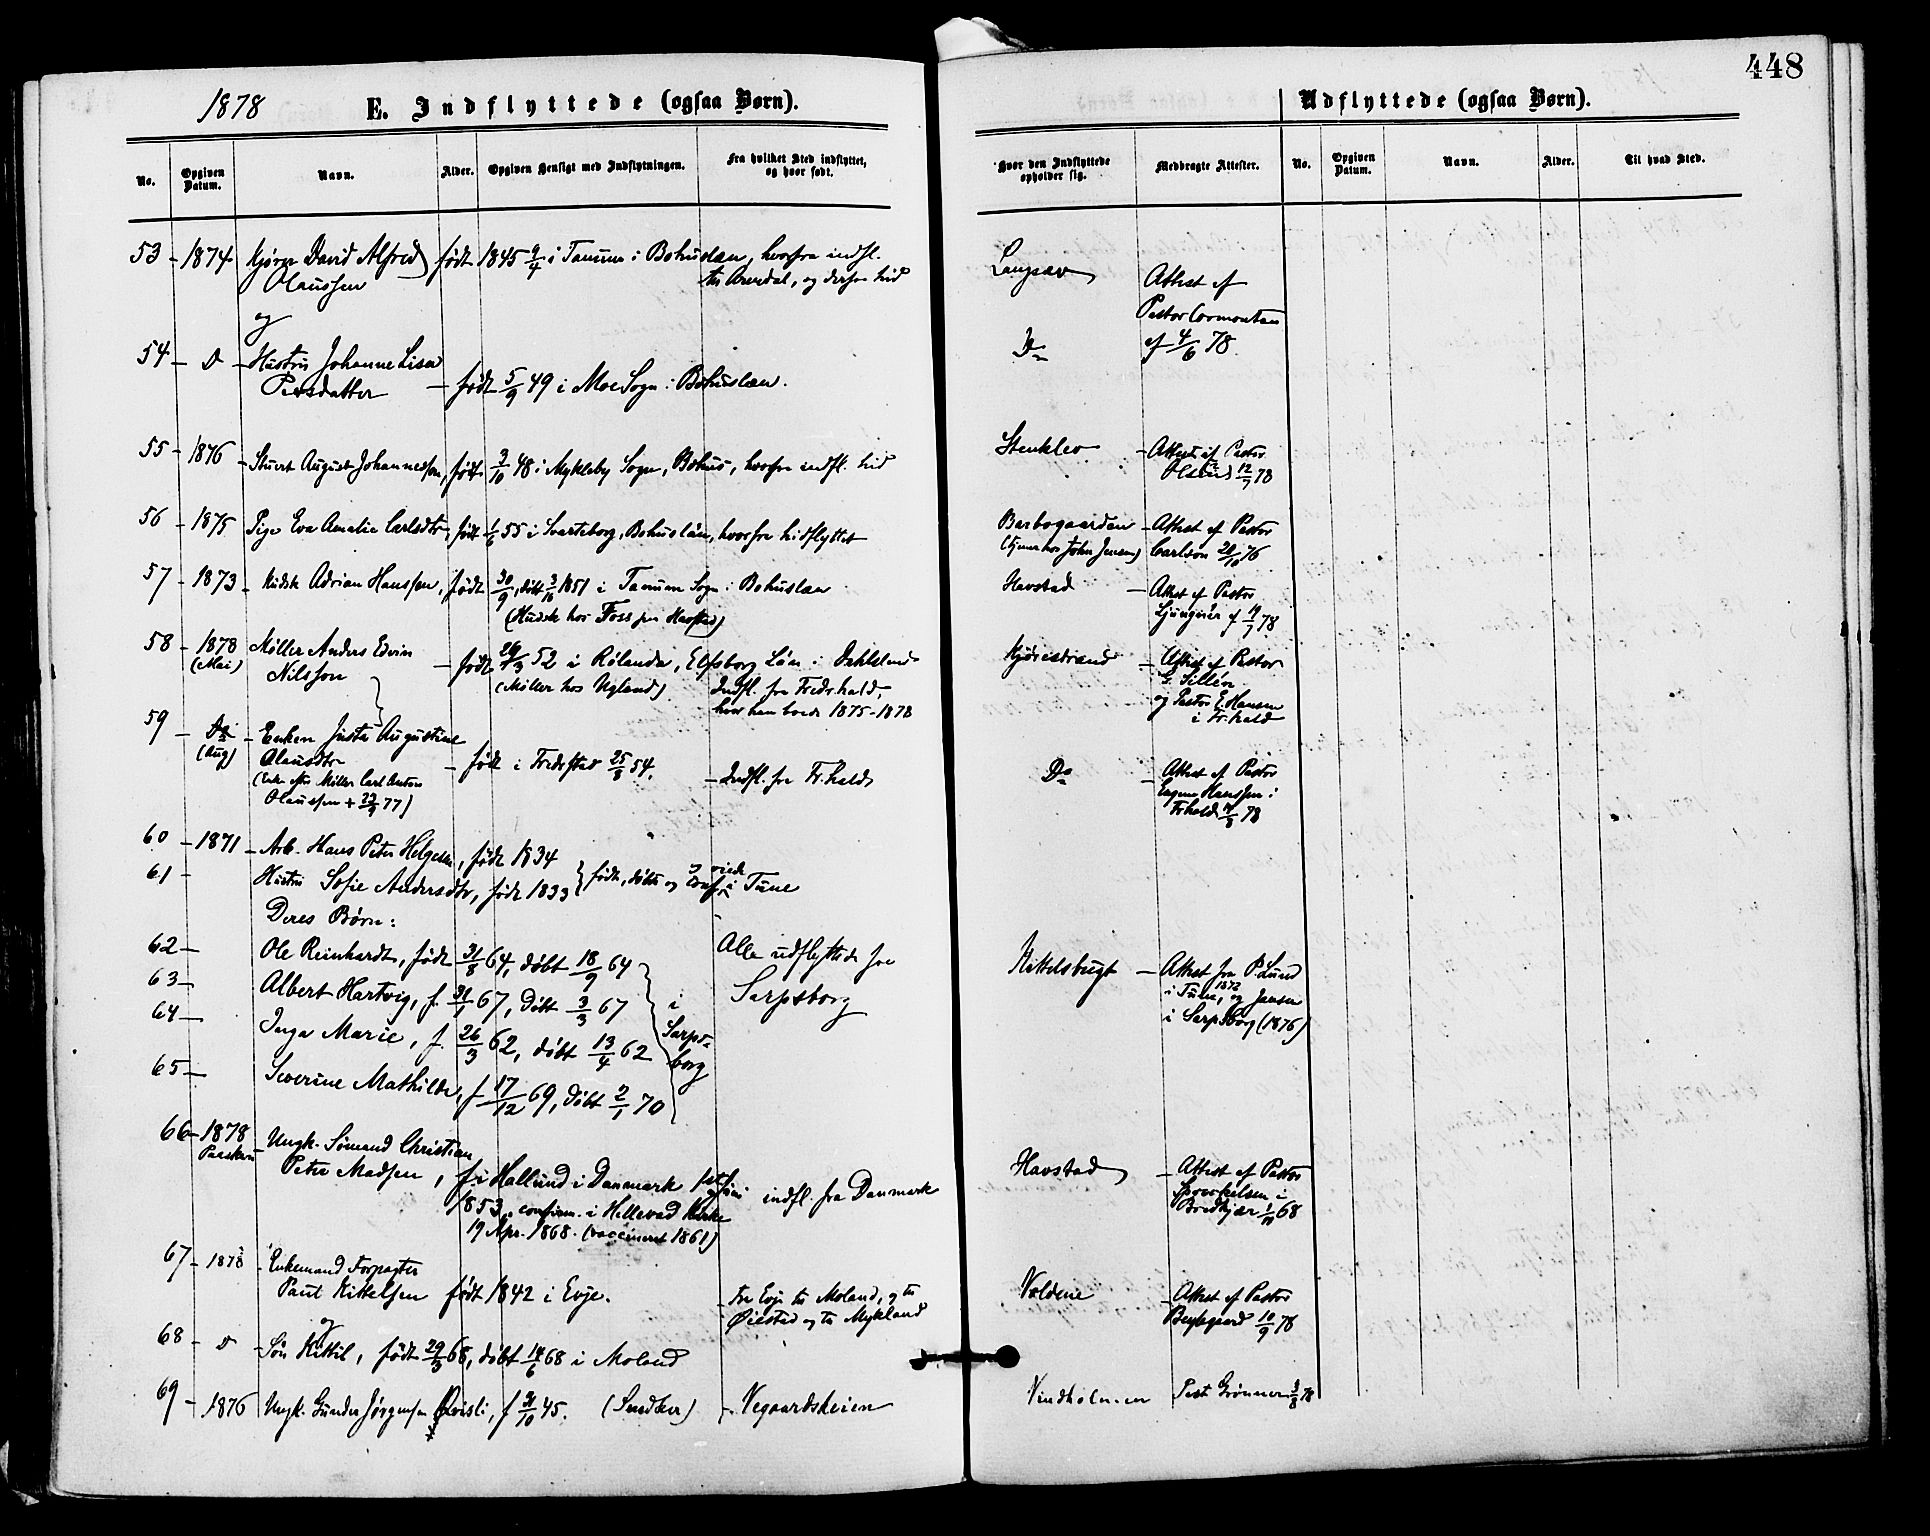 448
1878 E. Indflyttede (ogsaa Børn). Udflyttede (ogsaa Børn).
No. Opgiven Datum. Navn. Alder. Opgiven Hensigt med Indflytningen. Fra hvilket Sted indflyttet, og hvor født. Hvor den Indflyttede opholder sig. Medbragte Attester. No. Opgiven Datum. Navn. Alder. Til hvad Sted.
53 - 1874 David Alfred født 1845 9/4 i Tanum i Bohuslæn, hvorfra indfl.
Olaussen til Arendal, og derfra hid
Langsæv Attest af
Pastor
af 4/6 78.
og
54 - D - Hustru Johanne Lisa
Persdatter - født 5/9 49 i Moe Sogn i Bohuslæn.
Do
55 - 1876 - August Johannessen, født 3/10 48 i Mykleby Sogn, Bohus, hvorfra indfl. hid
Stenklev - Attest af Pastor
Olsen 12/7 78
56 - 1875 Pige Eva Amalie Carlsdtr, født 1/6 55 i Svarteborg, Bohuslän, hvorfra hidflyttet
Barbogaarden - Attest af Pastor
(tjener hos John Jensen) Carlson 28/10 76
57 - 1873 - Kudsk Adrian Hanssen, født 30/9, døbt 3/10 1851 i Tanum Sogn i Bohuslæn
(Kudsk hos Foss paa Havstad)
Havstad - Attest af Pastor
Ljungvér af 19/7 78
58 - 1878 Møller Anders Edvin
(Mai) Nilsson - født 26/3 52 i Rølanda, Elfsborg Län i Dahlsland
(Møller hos Ugland) Indfl. fra Fredrhald,
hvor han boede 1875-1878
- Attest af Pastor
G. Sillén
og Pastor E. Hansen
i Fr.hald
59 - Do - Enken Juste Augustine
(Aug) Olausdtr - født i Fredrstad 25/8 54. - Indfl. fra Fr.hald
(Enke efter Møller Carl Anton
Olaussen + 22/9 77)
Do - Attest af Pastor
Eugen Hanssen i
Frhald 14/8 78
60 - 1871 - Arb. Hans Peter Helgesen, født 1834
61 - Hustru Sofie Andersdtr, født 1833 } født, døbt og conf. og viede i Tune
Deres Børn:
62 - Ole Reinhardt, født 31/8 64, døbt 18/9 64 Alle udflyttede fra
63 - Albert Hartvig, f. 31/1 67, døbt 3/3 67 i Sarpsborg
64 - Inga Marie, f. 26/3 62, døbt 13/4 62 Sarps-
borg
65 - Severine Mathilde, f 17/12 69, døbt 2/1 70
Kittelsbugt - Attest fra P. Lund
i Tune, 1872 og Jansen
i Sarpsborg (1876)
66 - 1878 - Ungk. Sømand Christian
Peter Madsen, f. i Hallund i Danmark
1853, confirm. i Hellevad Kirke
19 Apr. 1868. (vaccineret 1861)
indfl. fra Danmark
Havstad - Attest af Pastor
i
1/11 68
67 - 1878 - Enkemand Forpagter
Paul Kittelsen født 1842 i Evje.
- Fra Evje til Moland, og til
Øiestad og til Mykland
Voldene - Attest af Pastor
10/9 78
og
68 - D - Søn Kittil, født 29/3 68, døbt 14/6 68 i Moland
69 - 1876 Ungk. Gunder Jørgensen Qvisli, f 31/10 45. (Snedker) - Vegaardsheien
Vindholmen Past. Grønner 3/8 78